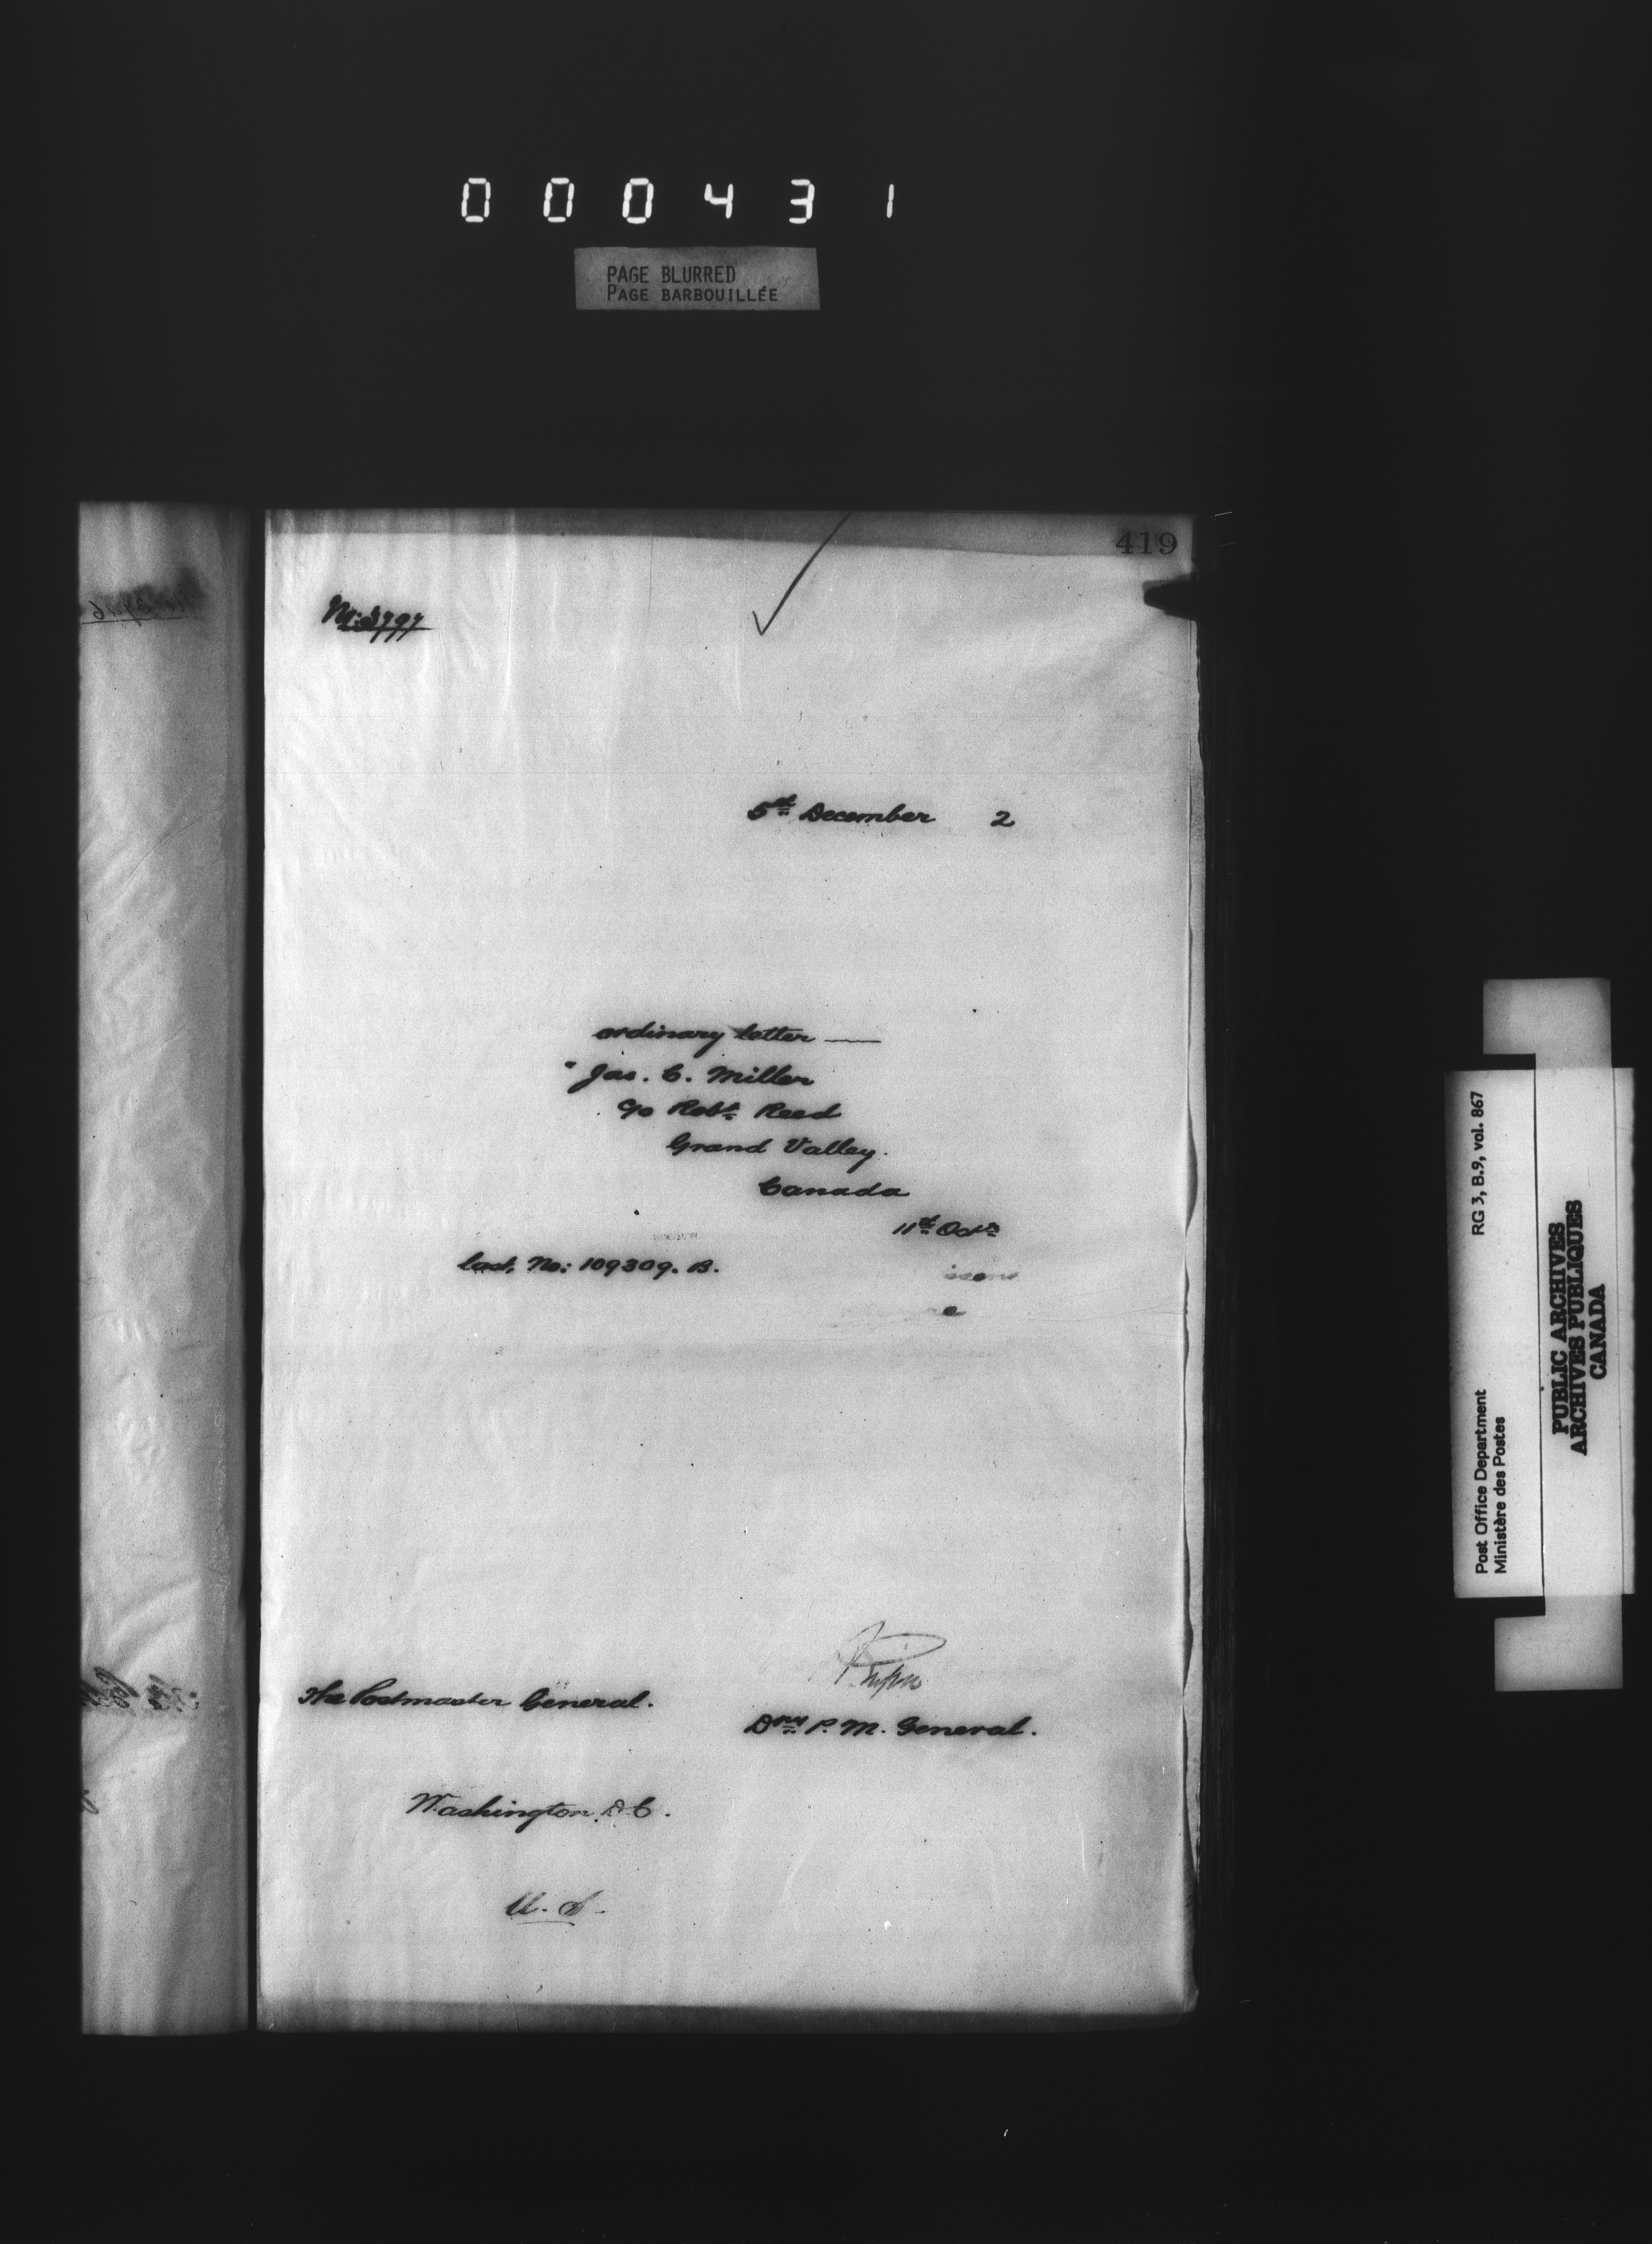 000431
PAGE BLURRED
PAGE BARBOUILLÉE
419
5th December 2
ordinary letter —
" Jas. C. Miller
c/o Robt. Reed
Grand Valley.
Canada
11th Octr.
last, No: 109309. B.
e
The Postmaster General.
Dny P. M. General.
Washington, D.C.
U. S.
RG 3, B.9, vol. 867
Post Office Department
Ministère des Postes
PUBLIC ARCHIVES
ARCHIVES PUBLIQUES
CANADA